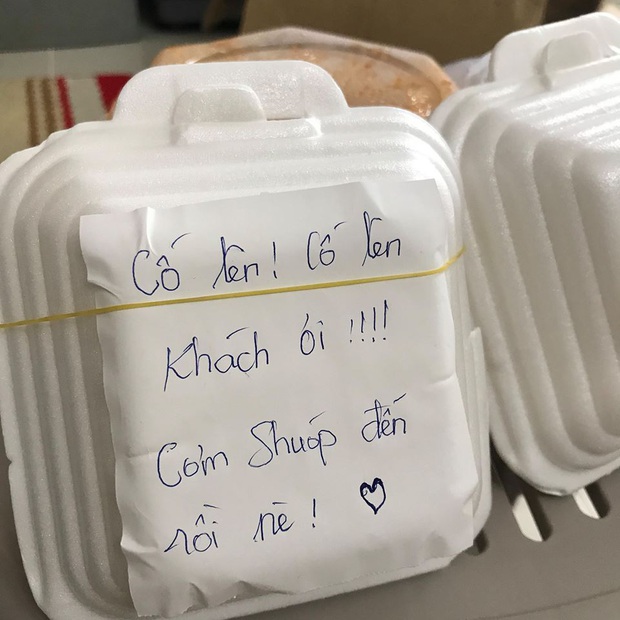 Cố lên! Cố lên
Khách ới !!!!
Cơm Shuóp đến
rồi nè! ♡